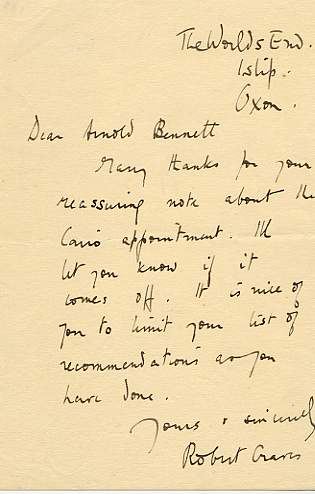 The Worlds End.
Islip.
Oxon.
Dear Arnold Bennett
Many thanks for your
reassuring note about the
Cairo appointment. Ill
let you know if it
comes off. It is nice of
you to limit your list of
recommendations as you
have done.
Yours sincerely
Robert Graves